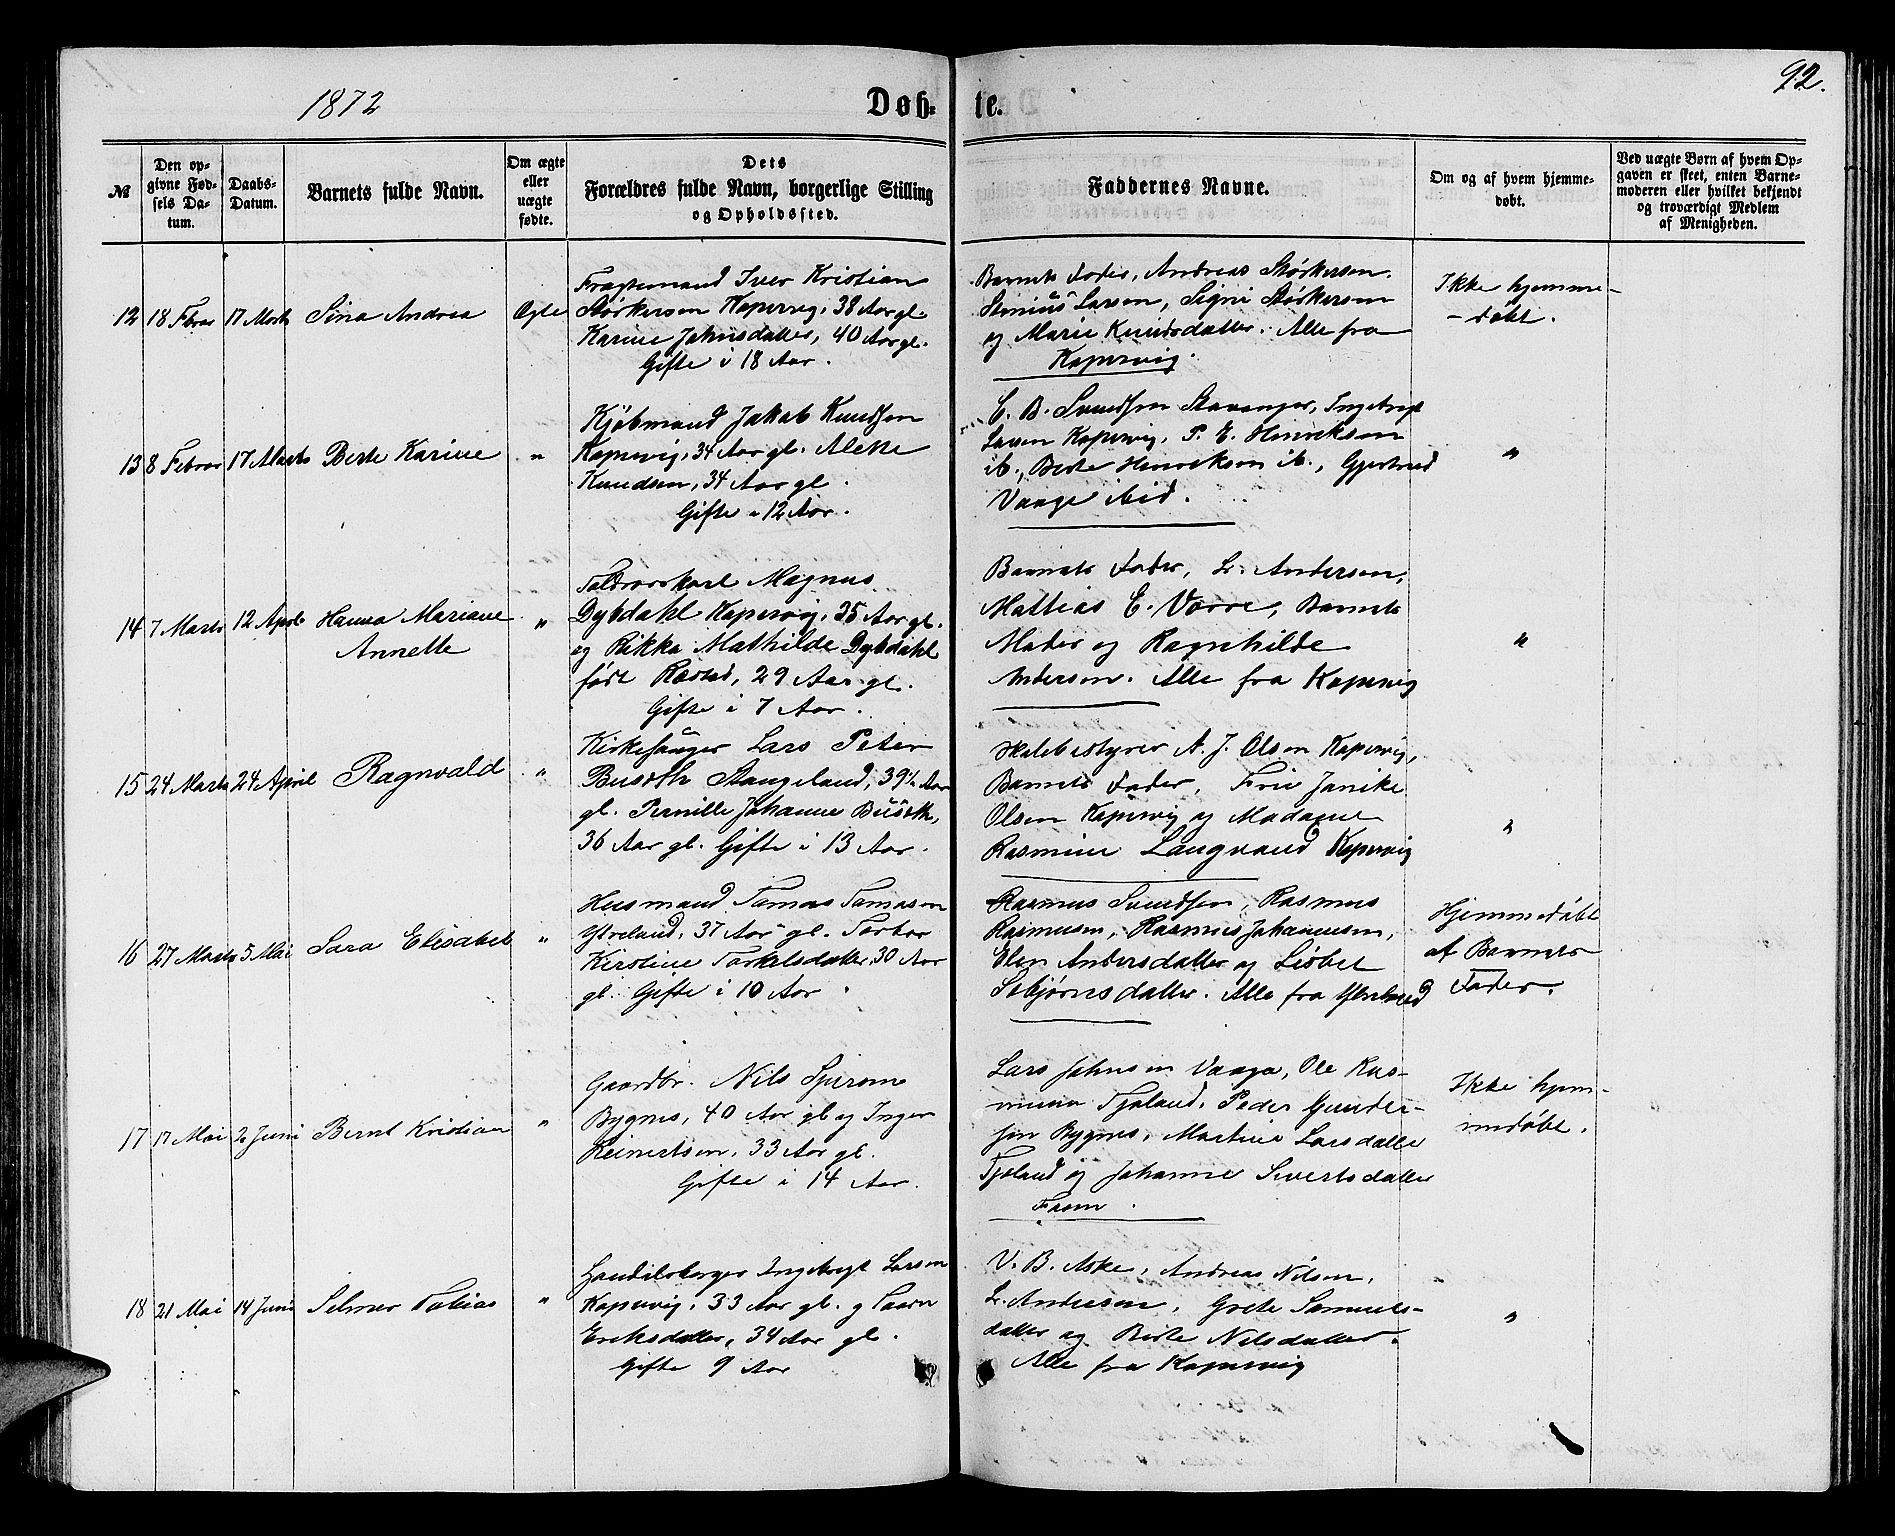 1872
Døb-
te.
92.
№
Den op-
givne Fød-
sels Da-
tum.
Daabs-
Datum.
Barnets fulde Navn.
Om ægte
eller
uægte
fødte.
Dets
Forældres fulde Navn, borgerlige Stilling
og Opholdssted.
Faddernes Navne.
Om og af hvem hjemme-
døbt.
Ved uægte Børn af hvem Op-
gaven er skeet, enten Barne-
moderen eller hvilket bekjendt
og troværdigt Medlem
af Menigheden.
12 18 Febror 17 Marts Sina Andrea Ægte
Fragtemand Iver Kristian
Størkersen Kopervig, 38 Aar gl.
Karine Jahnsdatter, 40 Aar gl.
Gifte i 18 Aar.
Barnets Fader, Andreas Størkersen.
Larsen, Signi Størkersen
og Marie Knudsdatter. Alle fra
Kopervig.
Ikke hjemme-
-døbt.
13 8 Febror 17 Marts Berte Karine "
Kjøbmand Jakob Knudsen
Kopervig, 34 Aar gl. Alette
Knudsen, 34 Aar gl.
Gifte i 12 Aar.
C. B. Svendsen Stavanger, Ingebregt
Larsen Kopervig, P. E. Henriksen
ib., Berte Henriksen ib., Gjertrud
Vaage ibid.
"
14 7 Marts 12 April Hanna Mariane
Annette
"
Toldroerskarl Magnus
Dybdahl Kopervig, 35 Aar gl.
og Rikka Mathilde Dybdahl
født 29 Aar gl.
Gifte i 7 Aar.
Barnets Fader, L. Andersen,
Mattias E. Vorre, Barnets
Moder og Ragnhilde
Andersen. Alle fra Kopervig
"
15 24 Marts 24 April Ragnvald "
Kirkesanger Lars Peter
Stangeland, 39½ Aar
gl. Pernille Johanne
36 Aar gl. Gifte i 13 Aar.
Skolebestyrer A. J. Olsen Kopervig,
Barnets Fader, Frie Janike
Olsen Kopervig og Madame
Rasmine Langvand Kopervig
"
16 27 Marts 5 Mai Sara Elisabet "
Husmand Tamas Tamasen
Ytreland, 37 Aar gl. Torbor
Kirstine Torkelsdatter, 30 Aar
gl. Gifte i 10 Aar.
Rasmus Svendsen, Rasmus
Rasmusen, Rasmus Johannesen,
Elen Andersdatter og Lisbet
Sebjørnsdatter. Alle fra Ytreland
Hjemmedøbt
af Barnets
Fader.
17 17 Mai 2 Juni Bernt Kristian "
Gaardbr. Nils
Bygnes, 40 Aar gl og Inger
Reinertsen, 33 Aar gl.
Gifte i 14 Aar.
Lars Johnsen Vaaga, Ole Ras-
musen Tjøland, Peder Gunder-
sen Bygnes, Martine Larsdatter
Tjøland og Johanne Sivertsdatter
Ikke hjem-
medøbt.
18 21 Mai 14 Juni Selmer Tobias "
Handelsborger Ingebregt Larsen
Kopervig, 33 Aar gl. og
Eriksdatter, 34 Aar gl.
Gifte 9 Aar
V. B. Aske, Andreas Nilsen,
L. Andersen, Grete Samuels-
datter og Berte Nilsdatter.
Alle fra Kopervig
"